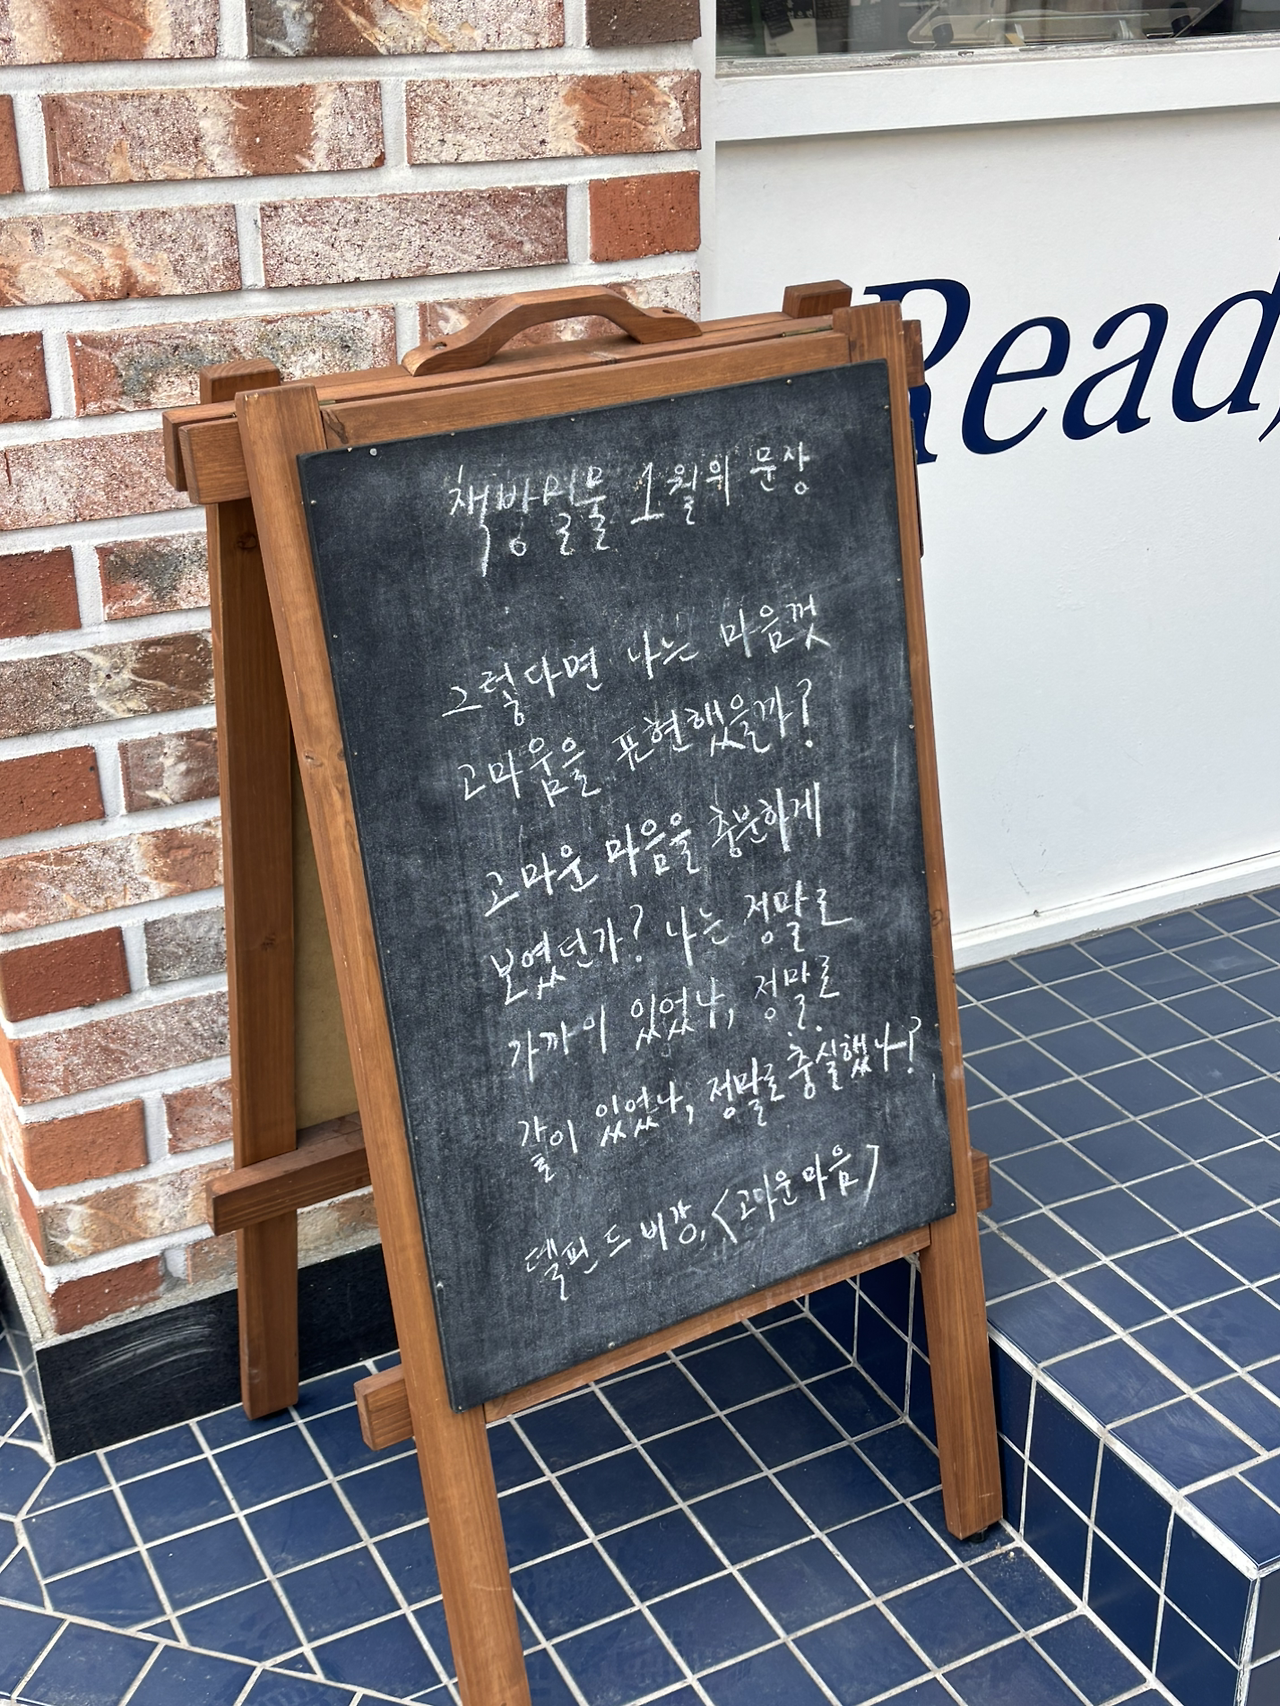 책방밀물 1월의 문장
그렇다면 나는 마음껏
고마움을 표현했을까?
고마운 마음을 충분하게
보였던가? 나는 정말로
가까이 있었나, 정말로
같이 있었나, 정말로 충실했나?
델핀 드 비강, <고마운 마음>
Read,